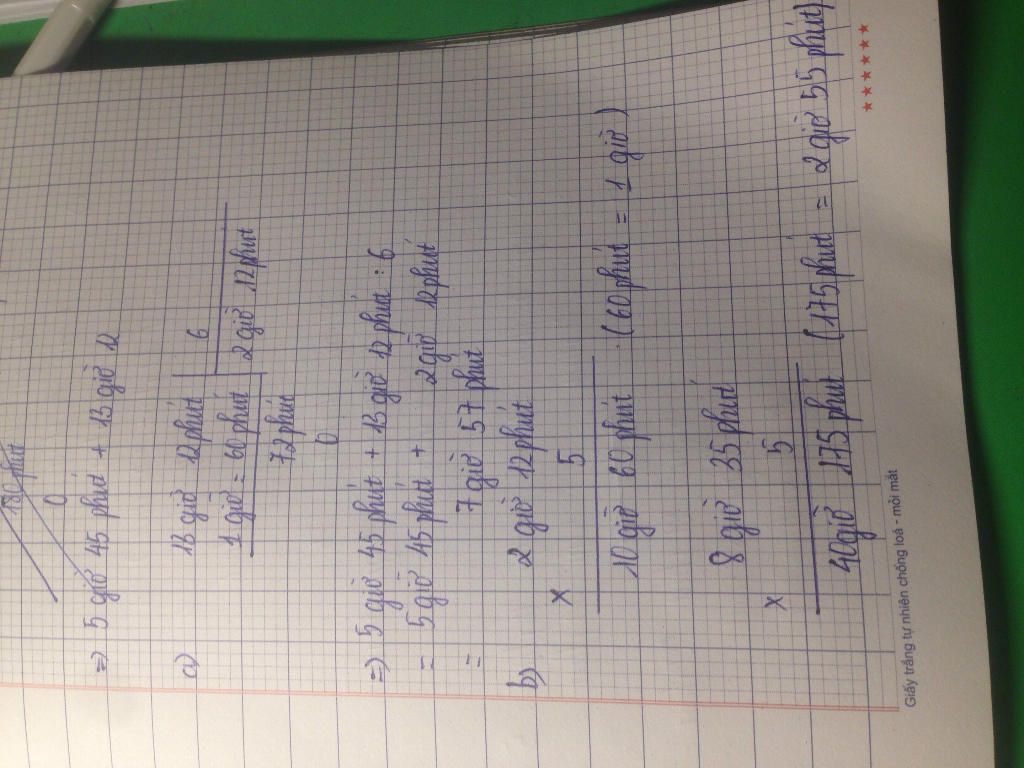 180 phút
0
=) 5 giờ 45 phút + 13 giờ 12
a) 13 giờ 12 phút 6
1 giờ = 60 phút 2 giờ 12 phút
72 phút
0
=) 5 giờ 45 phút + 13 giờ 12 phút : 6
= 5 giờ 45 phút + 2 giờ 12 phút
= 7 giờ 57 phút
b) 2 giờ 12 phút
x 5
10 giờ 60 phút (60 phút = 1 giờ)
8 giờ 35 phút
x 5
40 giờ 175 phút (175 phút = 2 giờ 55 phút)
Giấy trắng tự nhiên chống loá - mỏi mắt